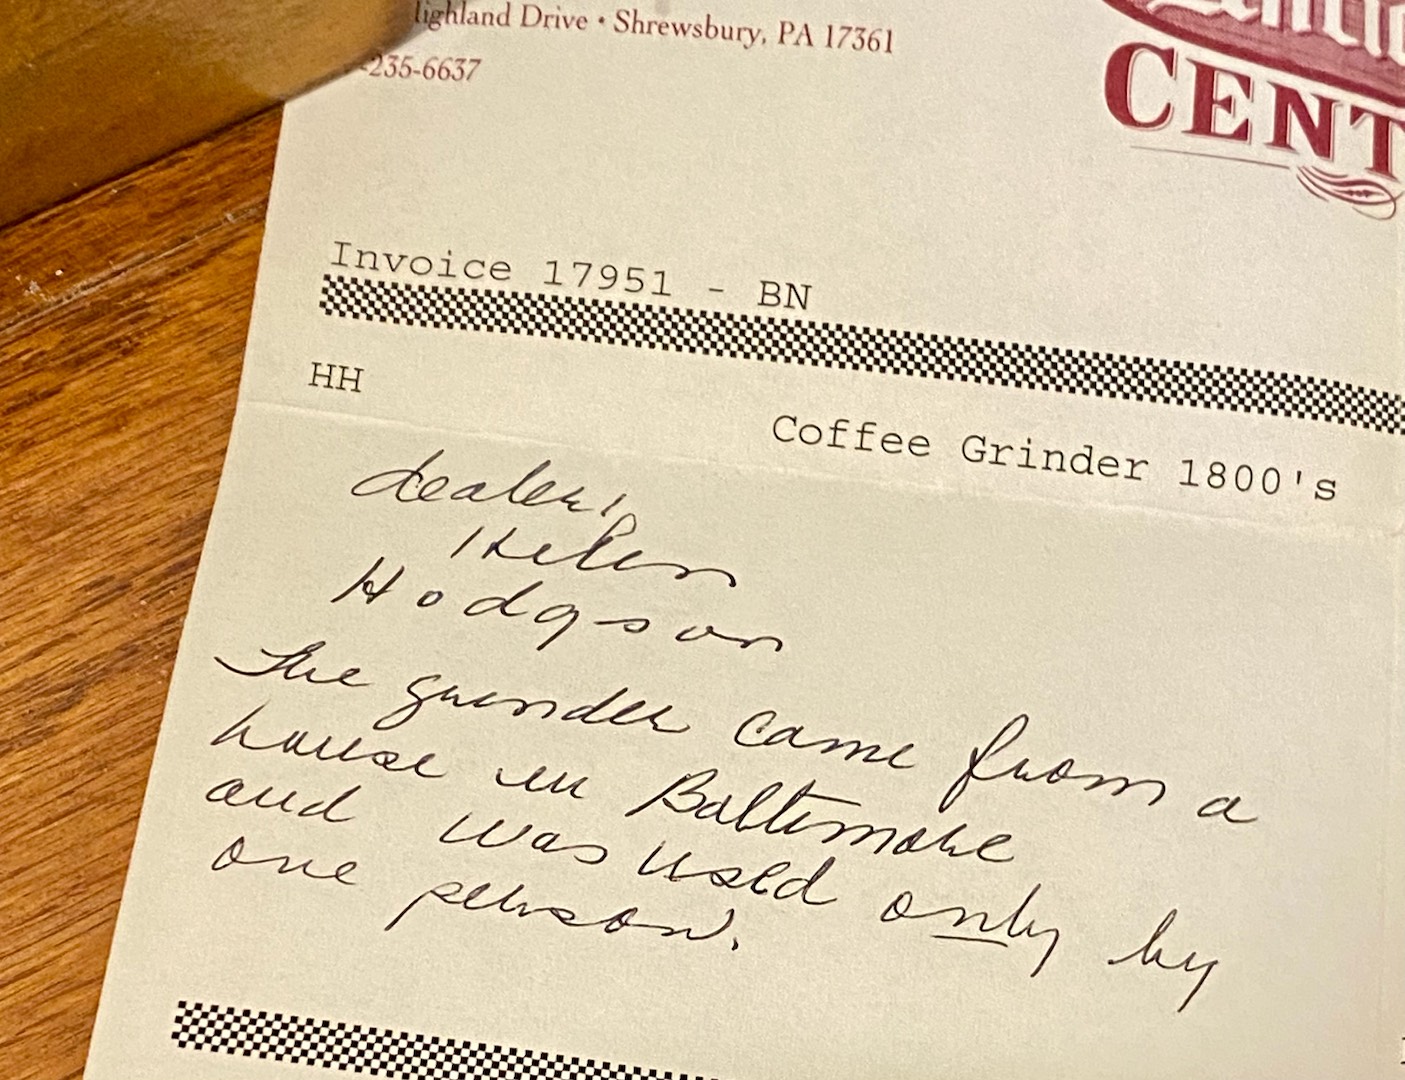 ighland Drive • Shrewsbury, PA 17361
-235-6637
CENT
Invoice 17951 - BN
HH
Coffee Grinder 1800's
dealer,
Helen
Hodgson
The grinder came from a
house in Baltimore
and was used only by
one person.